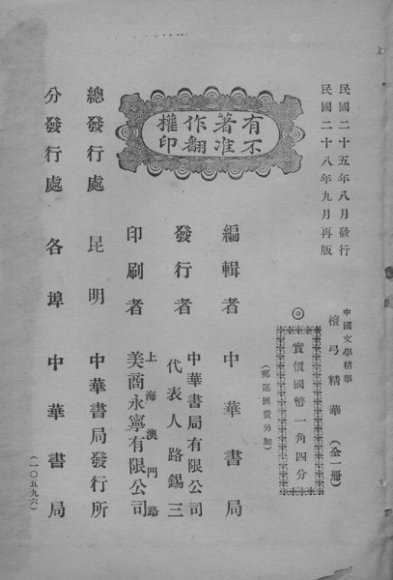 民國二十五年八月發行
民國二十八年九月再版
有著作權
不准翻印
中國文學精華
檀弓精華（全一冊）
◎實價國幣一角四分
（郵運匯費另加）
編輯者　中華書局
發行者　中華書局有限公司
代表人路錫三
印刷者　上海澳門路
美商永寧有限公司
總發行處　昆明　中華書局發行所
分發行處　各埠　中華書局
（一〇五九六）